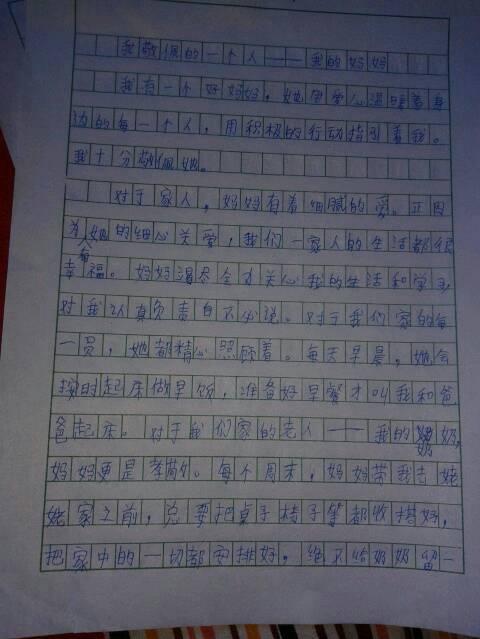 我敬佩的一个人——我的妈妈
我有一个好妈妈，她用爱心温暖着身
边的每一个人，用积极的行动指引着我。
我十分敬佩她。
对于家人，妈妈有着细腻的爱。正因
为她的细心关爱，我们一家人的生活都很
幸福。妈妈竭尽全力关心我的生活和学习
对我认真负责自不必说。对于我们家的每
一员，她都精心照顾着。每天早晨，她会
按时起床做早饭，准备好早餐才叫我和爸
爸起床。对于我们家的老人——我的奶奶，
妈妈更是孝敬。每个周末，妈妈带我去姥
姥家之前，总要把桌子椅子等都收搭好，
把家中的一切都安排好，绝不给奶奶留一